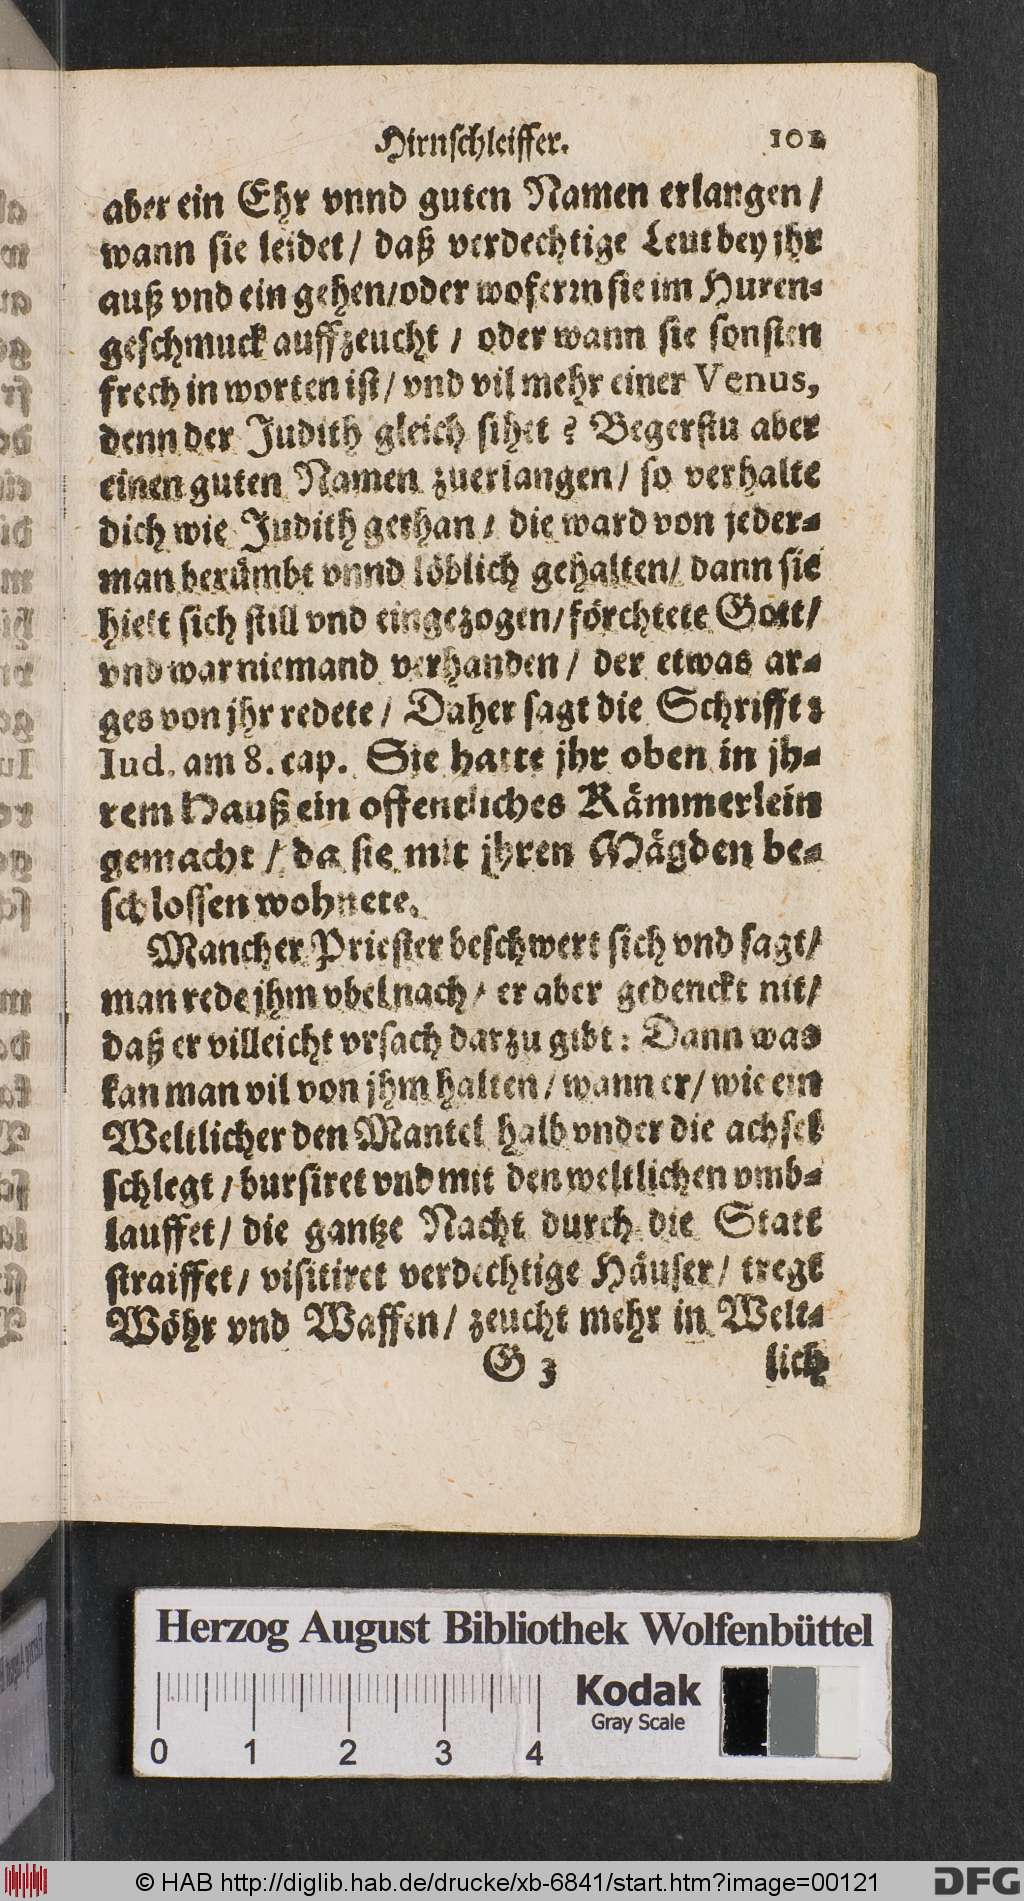 Hirnschleiffer. 101
aber ein Ehr vnnd guten Namen erlangen /
wann sie leidet / daß verdechtige Leut bey jhr
auß vnd ein gehen / oder wofern sie im Huren-
geschmuck auffzeucht / oder wann sie sonsten
frech in worten ist / vnd vil mehr einer Venus,
denn der Judith gleich sihet ? Begerstu aber
einen guten Namen zuerlangen / so verhalte
dich wie Judith gethan / die ward von jeder-
man berümbt vnnd löblich gehalten / dann sie
hielt sich still vnd eingezogen / förchtete Gott /
vnd war niemand verhanden / der etwas ar-
ges von jhr redete / Daher sagt die Schrifft :
Iud. am 8. cap. Sie hatte jhr oben in jh-
rem Hauß ein offentliches Kämmerlein
gemacht / da sie mit jhren Mägden be-
schlossen wohnete.
Mancher Priester beschwert sich vnd sagt /
man rede jhm vbel nach / er aber gedenckt nit /
daß er villeicht vrsach darzu gibt : Dann was
kan man vil von jhm halten / wann er / wie ein
Weltlicher den Mantel halb vnder die achsel
schlegt / bursiret vnd mit den weltlichen vmb-
lauffet / die gantze Nacht durch die Statt
straiffet / visitiret verdechtige Häuser / tregt
Wöhr vnd Waffen / zeucht mehr in Welt-
G 3 lich
Herzog August Bibliothek Wolfenbüttel
Kodak
Gray Scale
0 1 2 3 4
© HAB http://diglib.hab.de/drucke/xb-6841/start.htm?image=00121
DFG